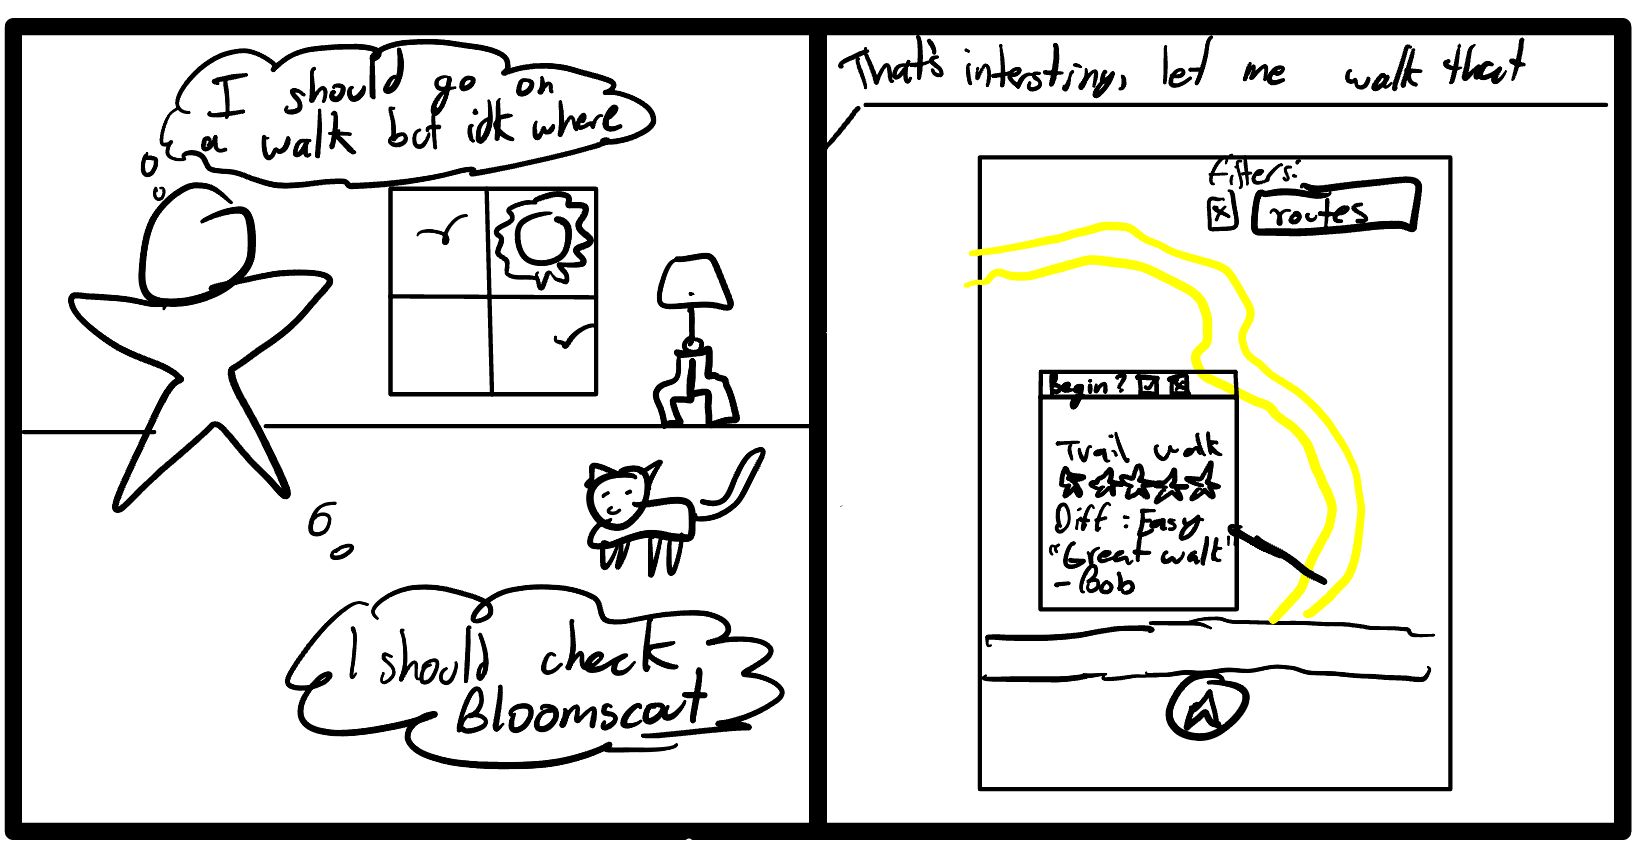 I should go on
a walk but idk where
I should check
Bloomscout
That's intersting, let me walk that
Filters:
routes
Begin?
Trail walk
Diff: Easy
"Great walk"
- Bob